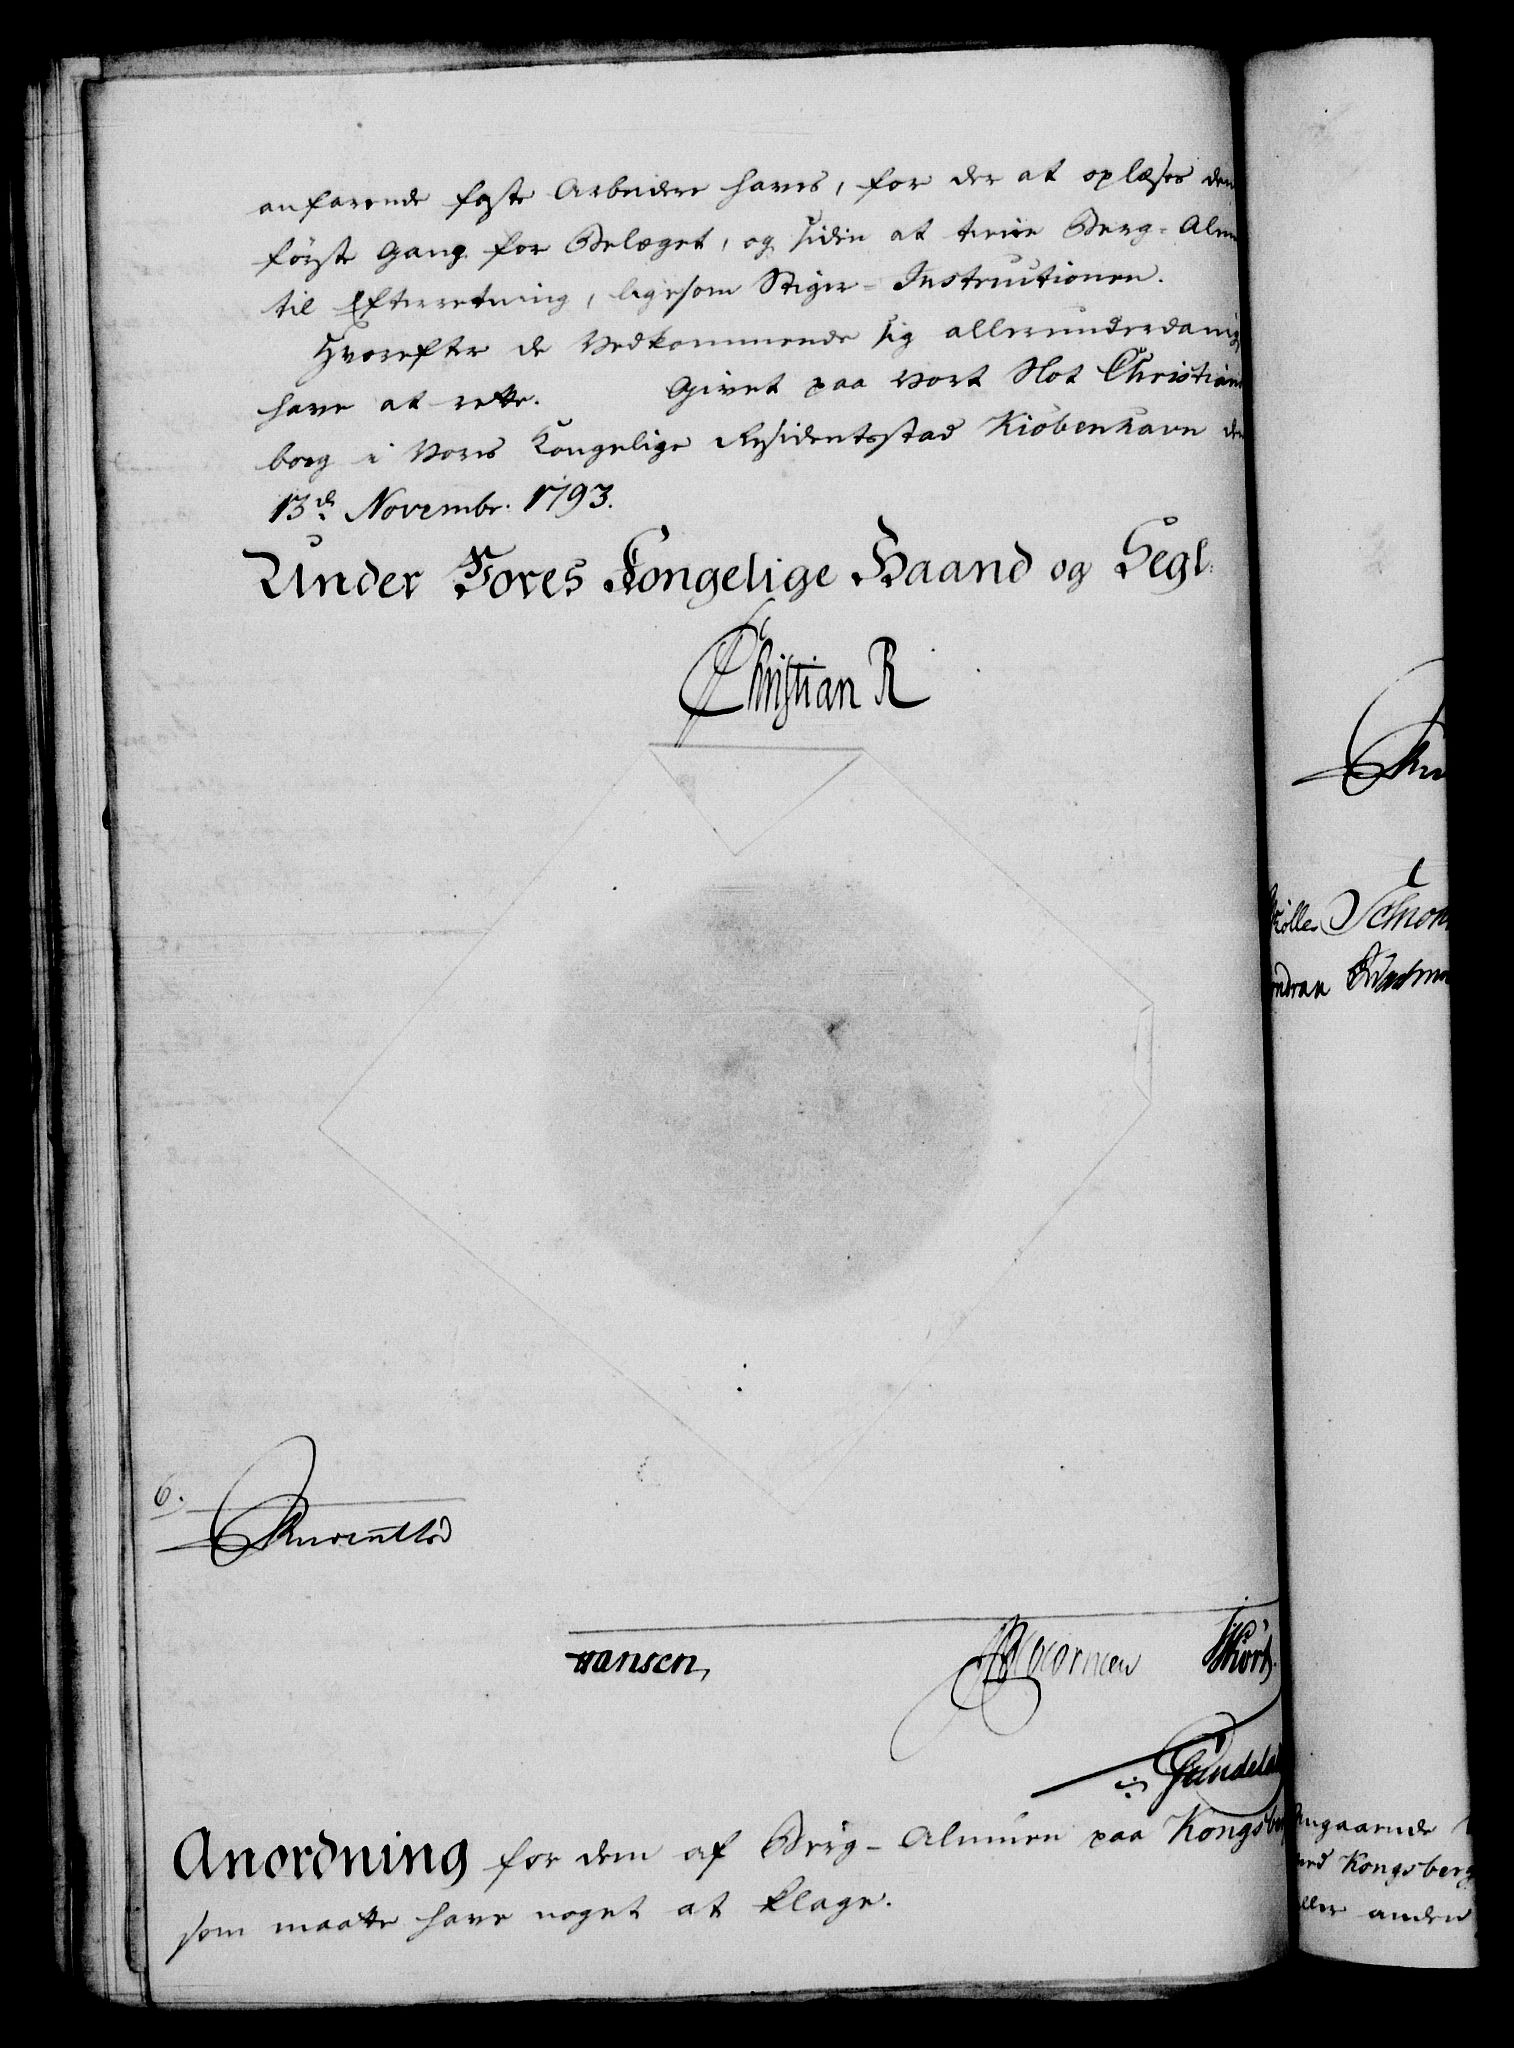 anfarende faste Arbeidere haves, for der at oplæses den
første Gang for Belæget, og siden at tiene Berg-Alm
til Efterretning, ligesom Stiger-Instructionen.
Hvorefter de Vedkommende sig allerunderdanig
have at rette. Givet paa Vort Slot Christians
borg i Vores Kongelige Residentsstad Kiöbenhavn den
13de Novembr. 1793.
Under Vores Kongelige Haand og Segl.
Christian R
6.
Reventlod
Hansen,
Kiørb.
Anordning for dem af Berg-Almuen paa Kongsb
som maatte have noget at klage.
ngaaende
ved Kongsberg
ller anden